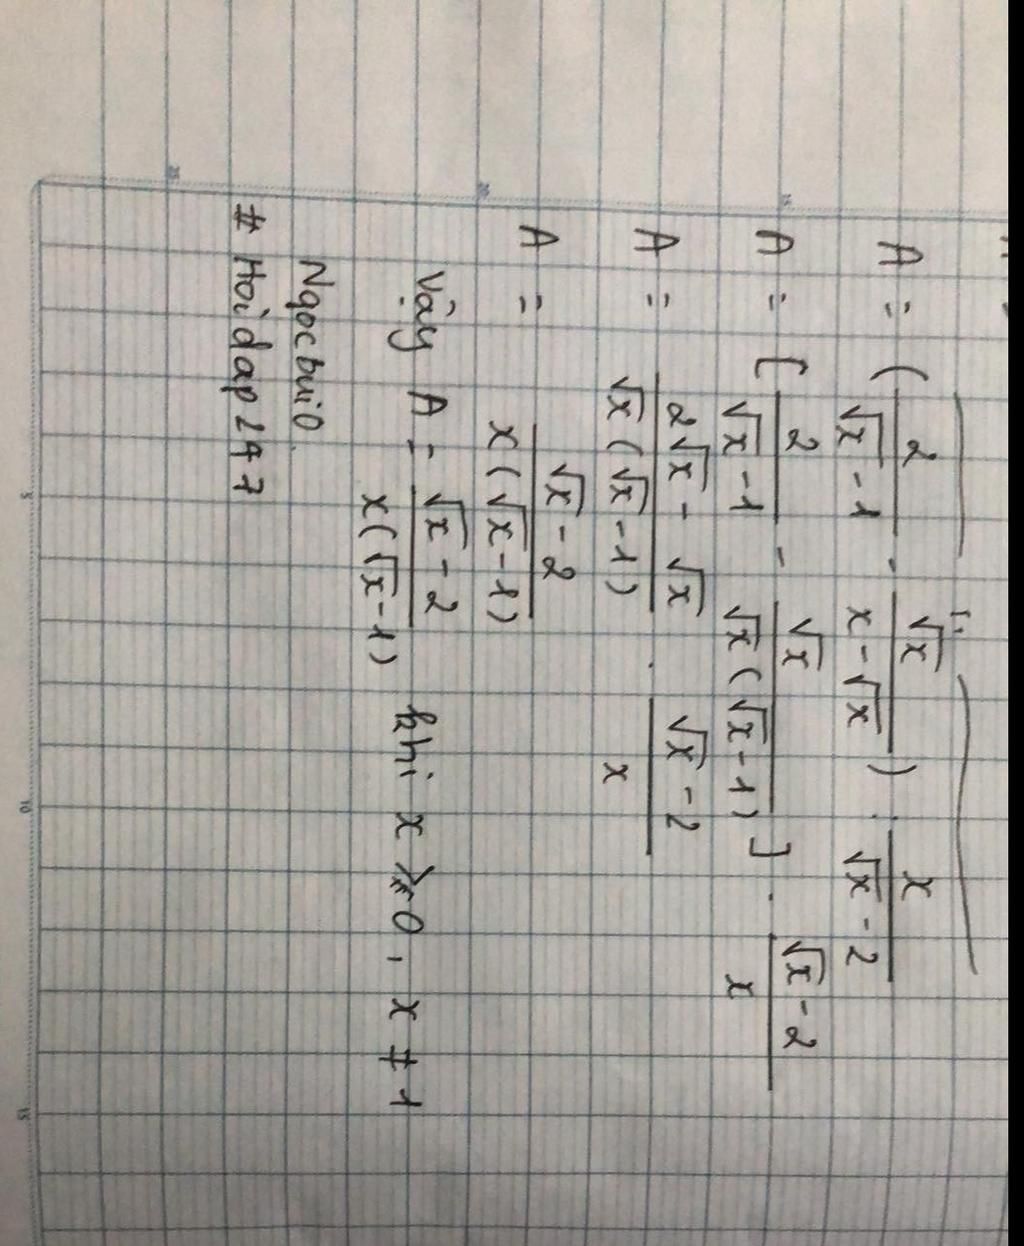 A = ( 2/(√x - 1) - √x/(x - √x) ) : x/(√x - 2)
A = [ 2/(√x - 1) - √x/(√x(√x - 1)) ] . (√x - 2)/x
A = (2√x - √x)/(√x(√x - 1)) . (√x - 2)/x
A = (√x - 2)/(x(√x - 1))
Vậy A = (√x - 2)/(x(√x - 1)) khi x ⩾ 0, x ≠ 1
Ngocbui0
# Hoidap247